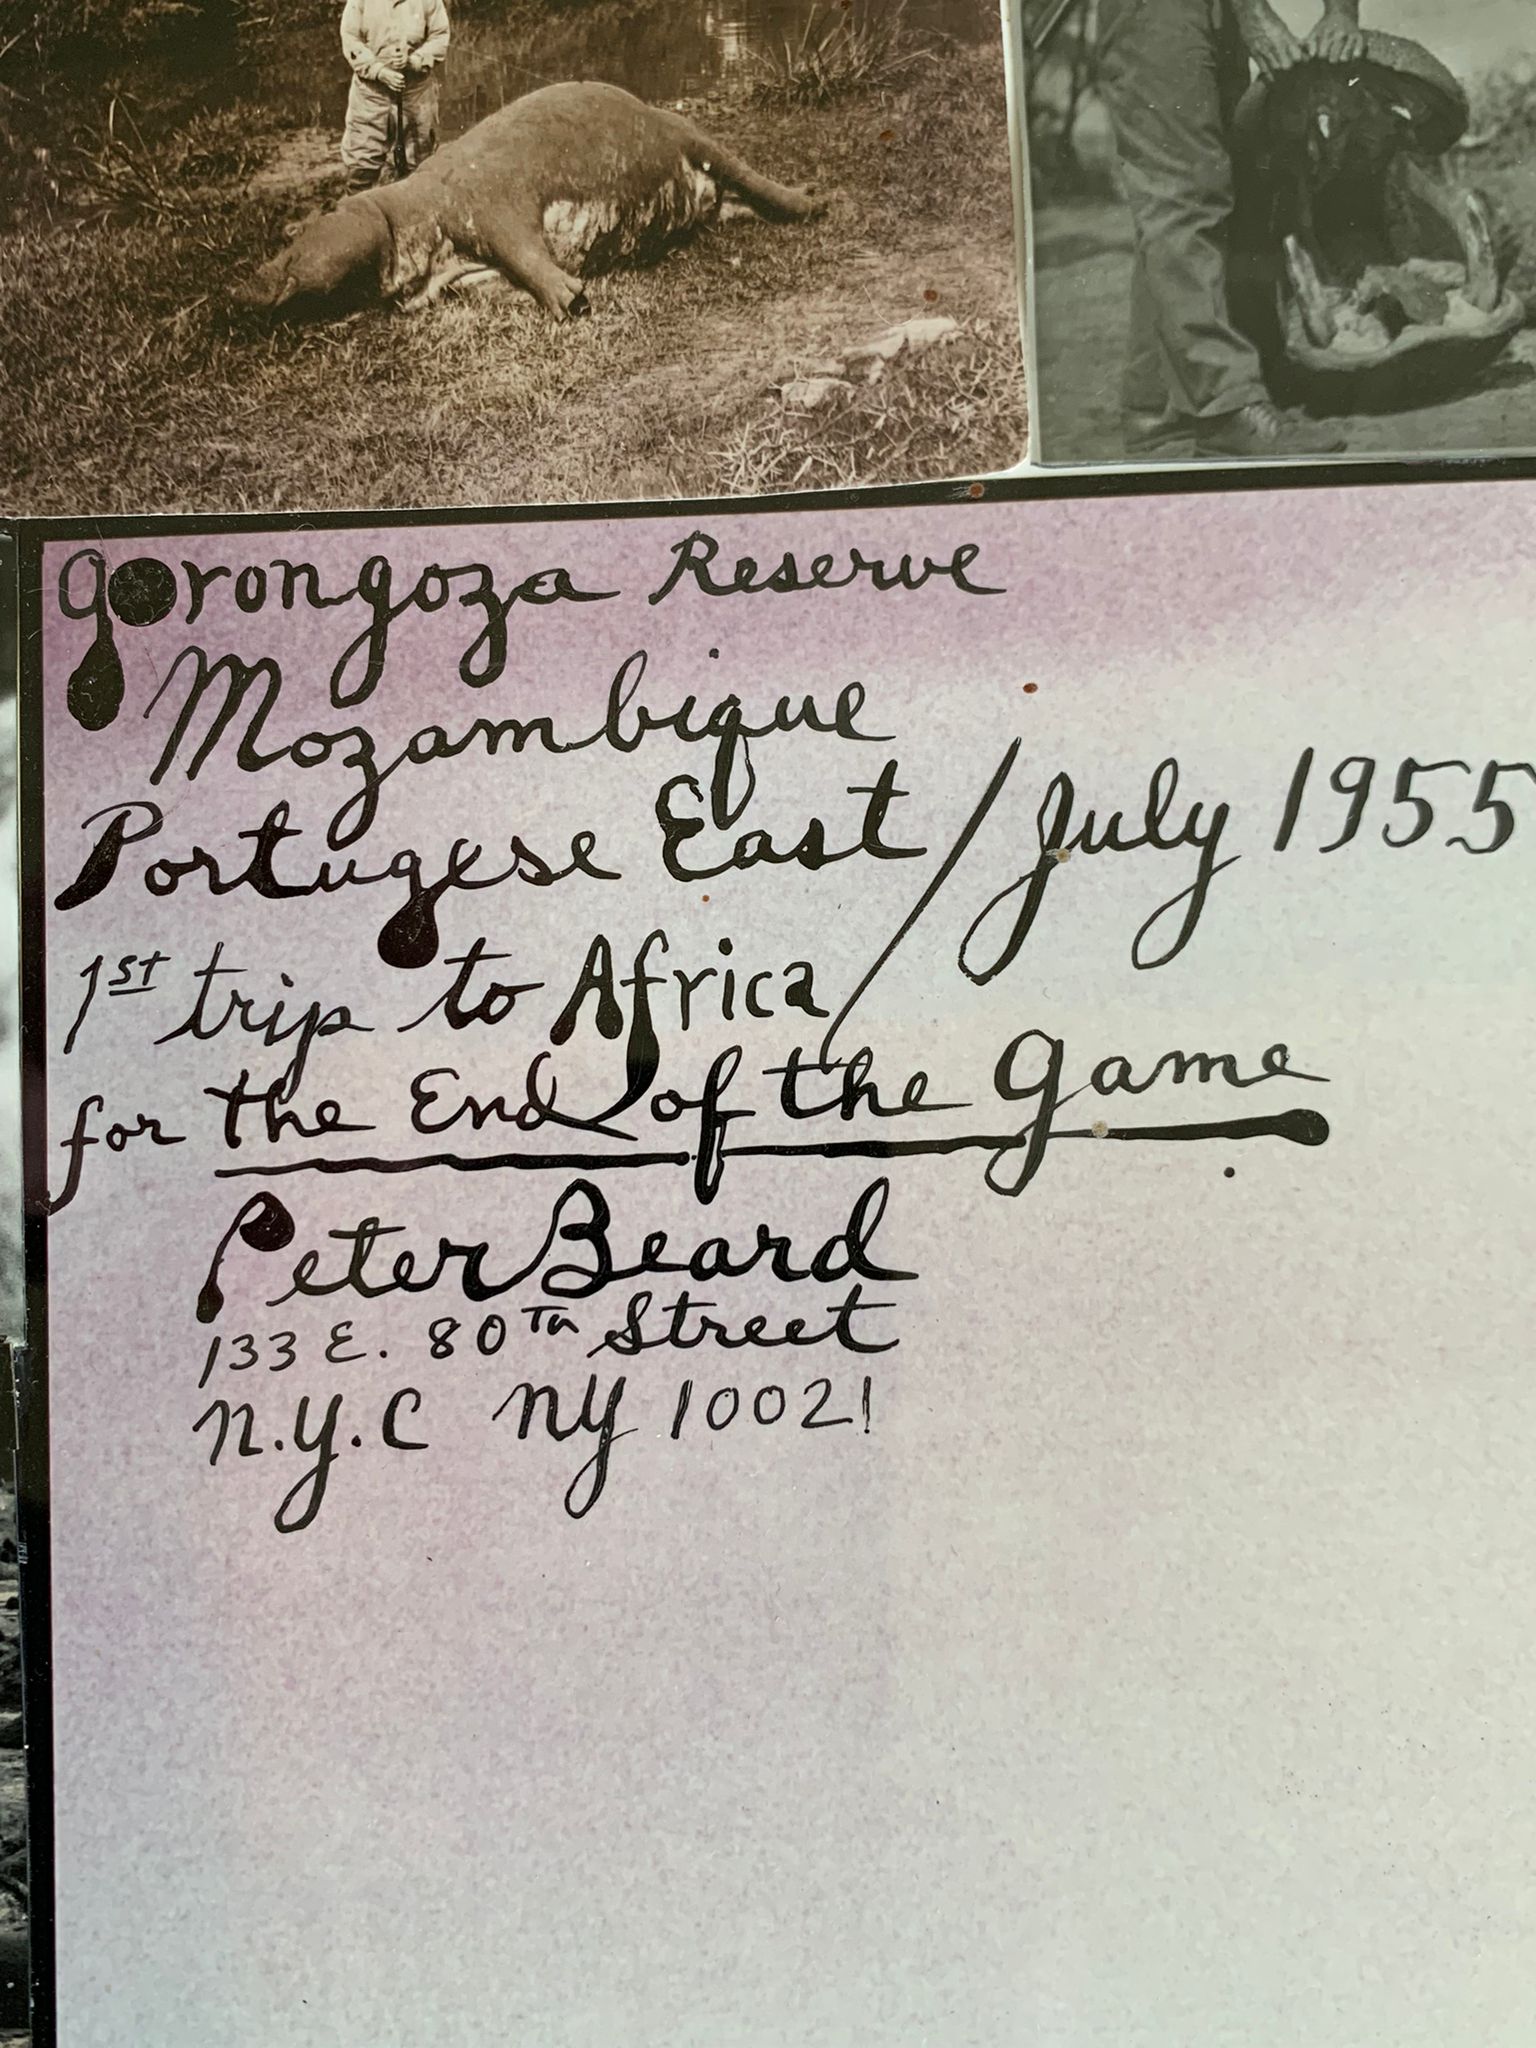 Gorongoza Reserve
Mozambique
Portugese East / July 1955
1st trip to Africa
for the End of the Game
Peter Beard
133 E. 80Th Street
N.Y.C NY 10021